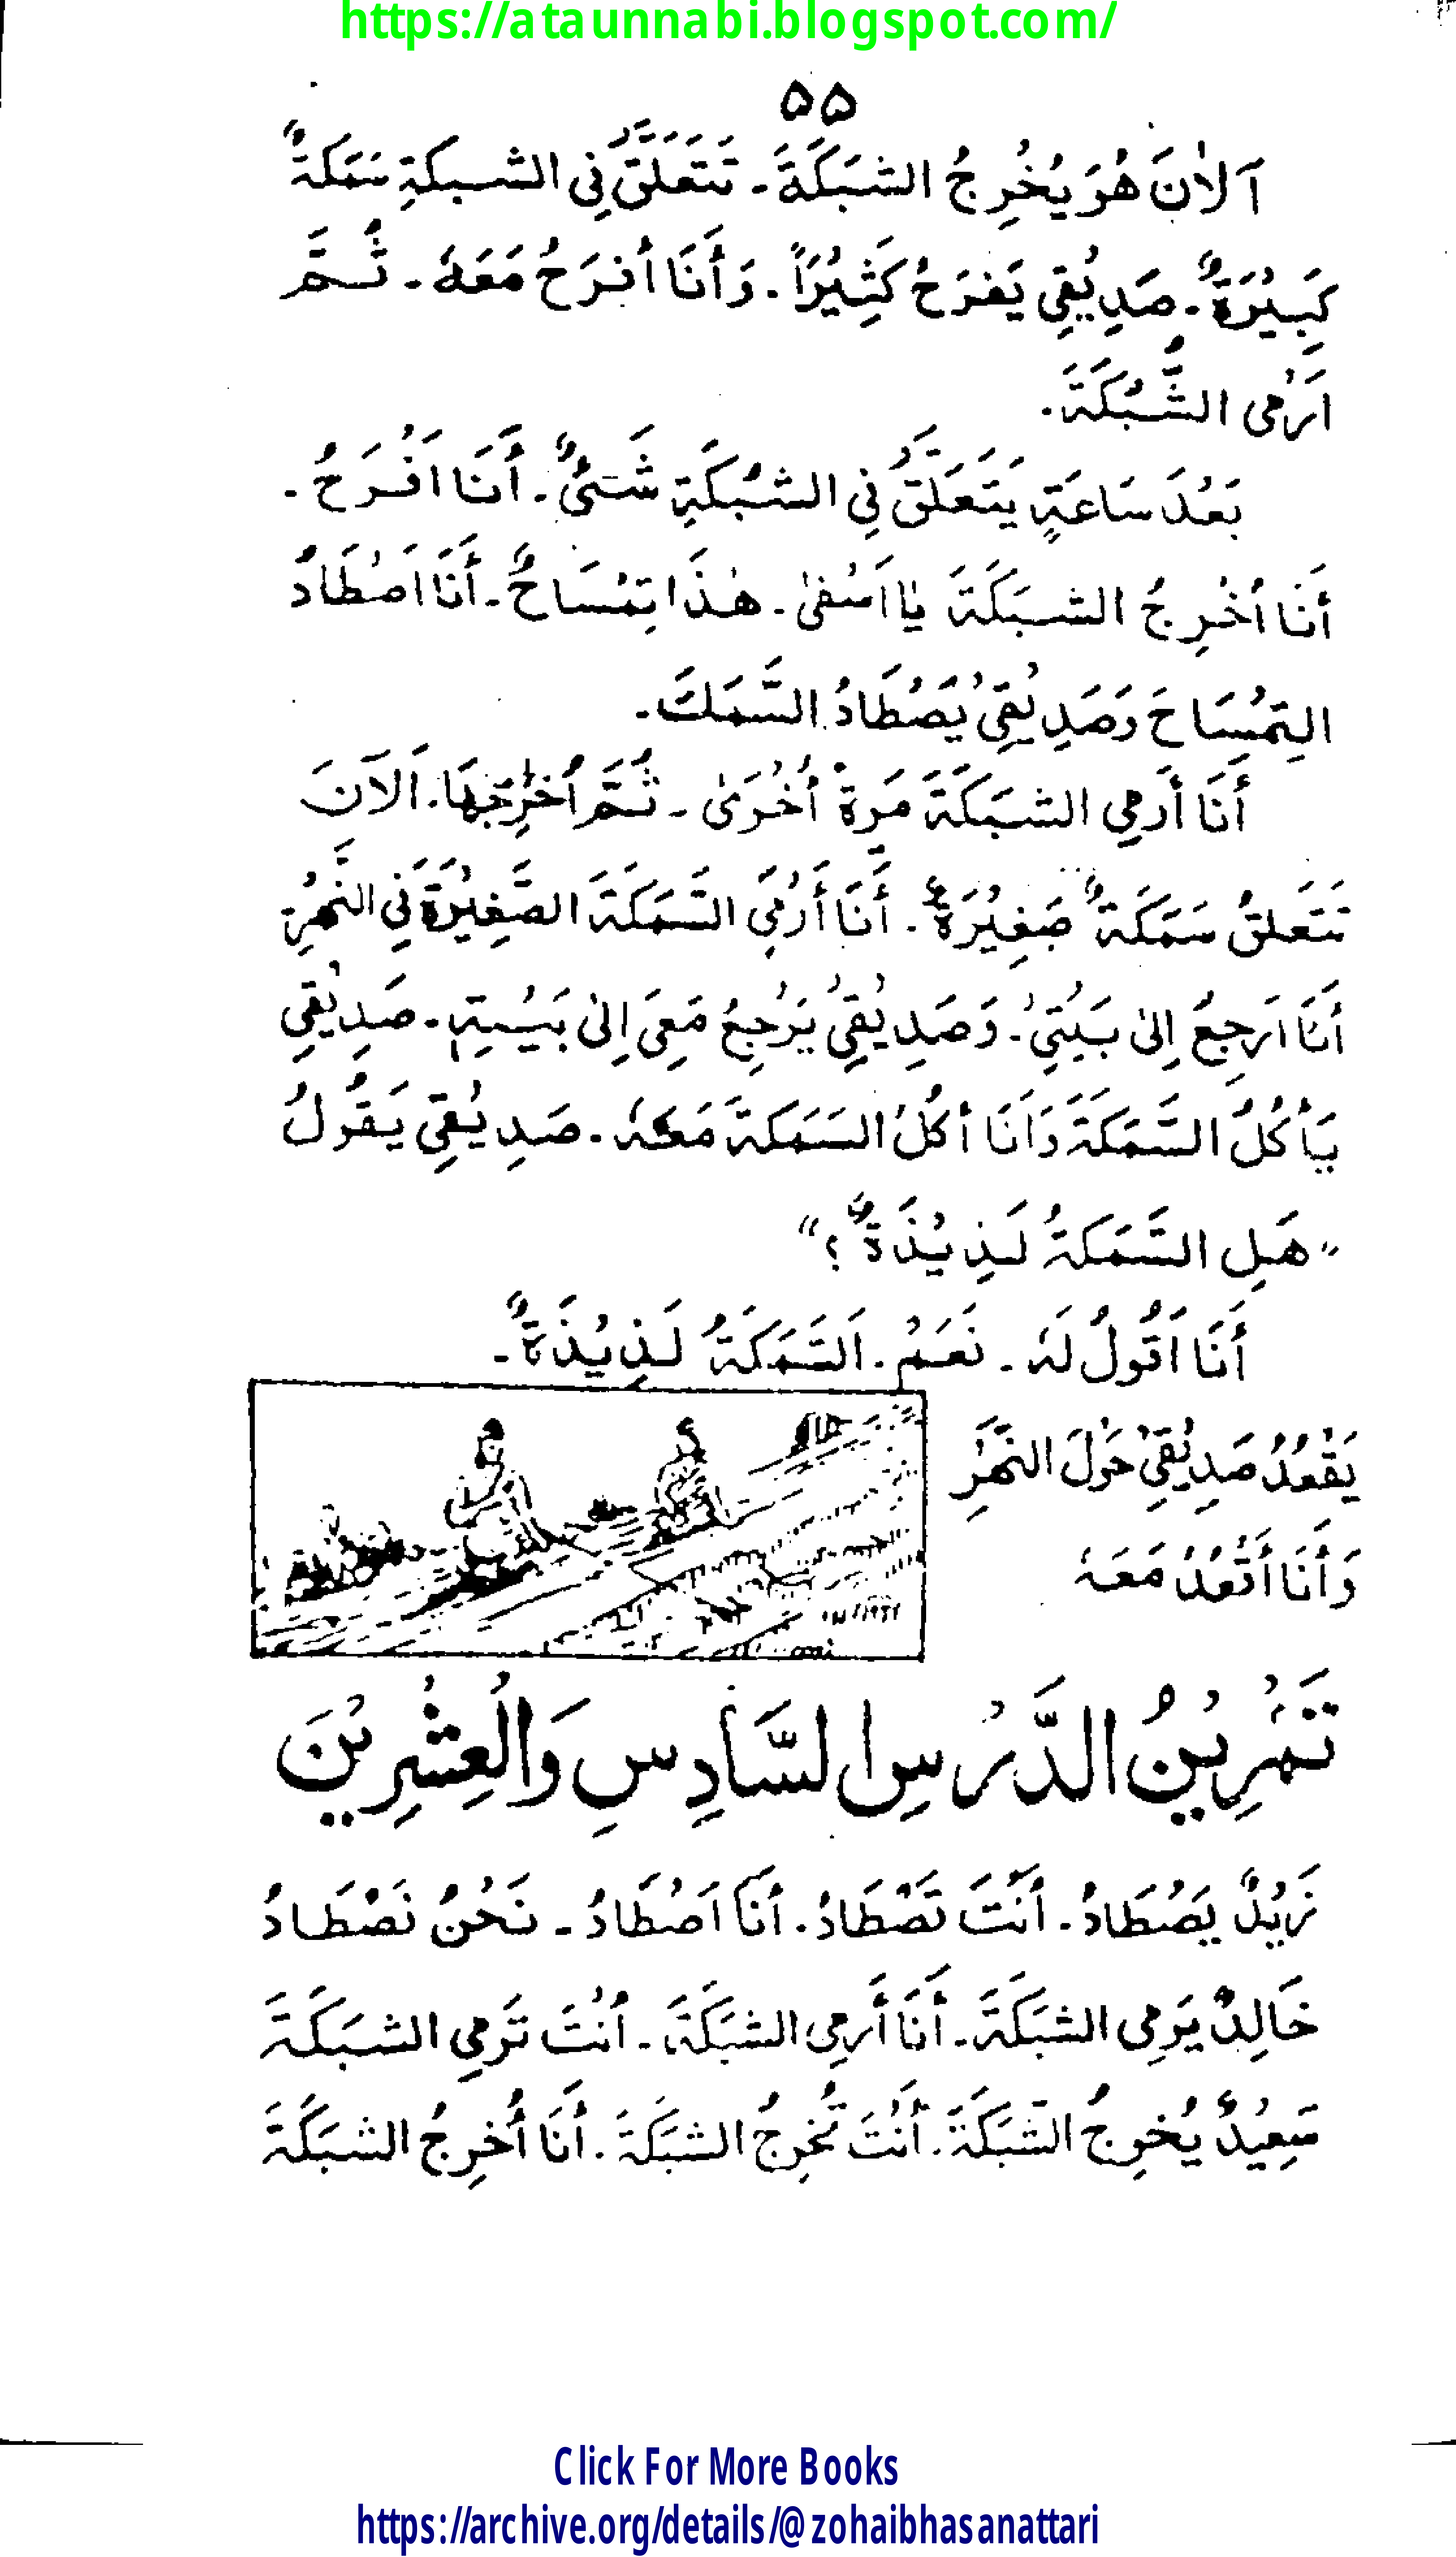 https://ataunnabi.blogspot.com/
۵۵
آلاٰنَ هُوَ يُخْرِجُ الشبَكَةَ ۔ تَتَعَلَّقُ فِي الشبكَةِ سَمَكَةٌ
كَبِيْرَةٌ ۔ صَدِيْقِي يَفرَحُ كَثِيْرًا ۔ وَأَنَا أفرَحُ مَعَهٗ ۔ ثُمَّ
اَرْمِى الشَّبْكَةَ ۔
بَعْدَ سَاعَةٍ يَتَعَلَّقُ فِي الشبْكَةِ شَئٌ ۔ أَنَا اَفْرَحُ ۔
أَنَا اُخْرِجُ الشبَكَةَ يَا اَسْفىٰ ۔ هٰذَا تِمْسَاحٌ ۔ أَنَا اَصْطَادُ
التِمْسَاحَ وَصَدِيْقِيْ يَصْطَادُ السَّمَكَ ۔
أَنَا أَرمِي الشبَكَةَ مَرةً أُخْرَىٰ ۔ ثُمَّ اُخْرِجُهَا ۔ اَلآنَ
تَتَعَلقُ سَمَكَةٌ صَغِيْرَةٌ ۔ أَنَا أَرْمِي السَّمَكَةَ الصَّغِيْرَةَ فِي النَّهْرِ
أَنَا اَرجِعُ اِلىٰ بَيْتِيْ ۔ وَصَدِيْقِيْ يَرْجِعُ مَعِيَ اِلىٰ بَيْتِهٖ ۔ صَدِيْقِيْ
يَأكُلُ السَّمَكَةَ وَاَنَا أكُلُ السَمَكَةَ مَعَهٗ ۔ صَدِيْقِي يَقُولُ
”هَلِ السَّمَكَةُ لَذِيْذَةٌ؟“
أَنَا اَقُولُ لَهٗ ۔ نَعَمْ ۔ اَلسَّمَكَةُ لَذِيْذَةٌ ۔
يَقْعُدُ صَدِيْقِيْ حَوْلَ النَّهْرِ
وَأَنَا أَقْعُدُ مَعَهٗ
تَمْرِيْنُ الدَّرْسِ السَّادِسِ وَالْعِشْرِيْنَ
زَيْدٌ يَصْطَادُ ۔ اَنْتَ تَصْطَادُ ۔ اَنَا اَصْطَادُ ۔ نَحْنُ نَصْطَادُ
خَالِدٌ يَرمِى الشبَكَةَ ۔ أَنَا أَرمِى الشبَكَةَ ۔ اَنْتَ تَرمِي الشبَكَةَ
سَعِيْدٌ يُخرِجُ الشَبَكَةَ ۔ اَنْتَ تُخرِجُ الشبَكَةَ ۔ اَنَا اُخرِجُ الشبَكَةَ
Click For More Books
https://archive.org/details/@zohaibhasanattari